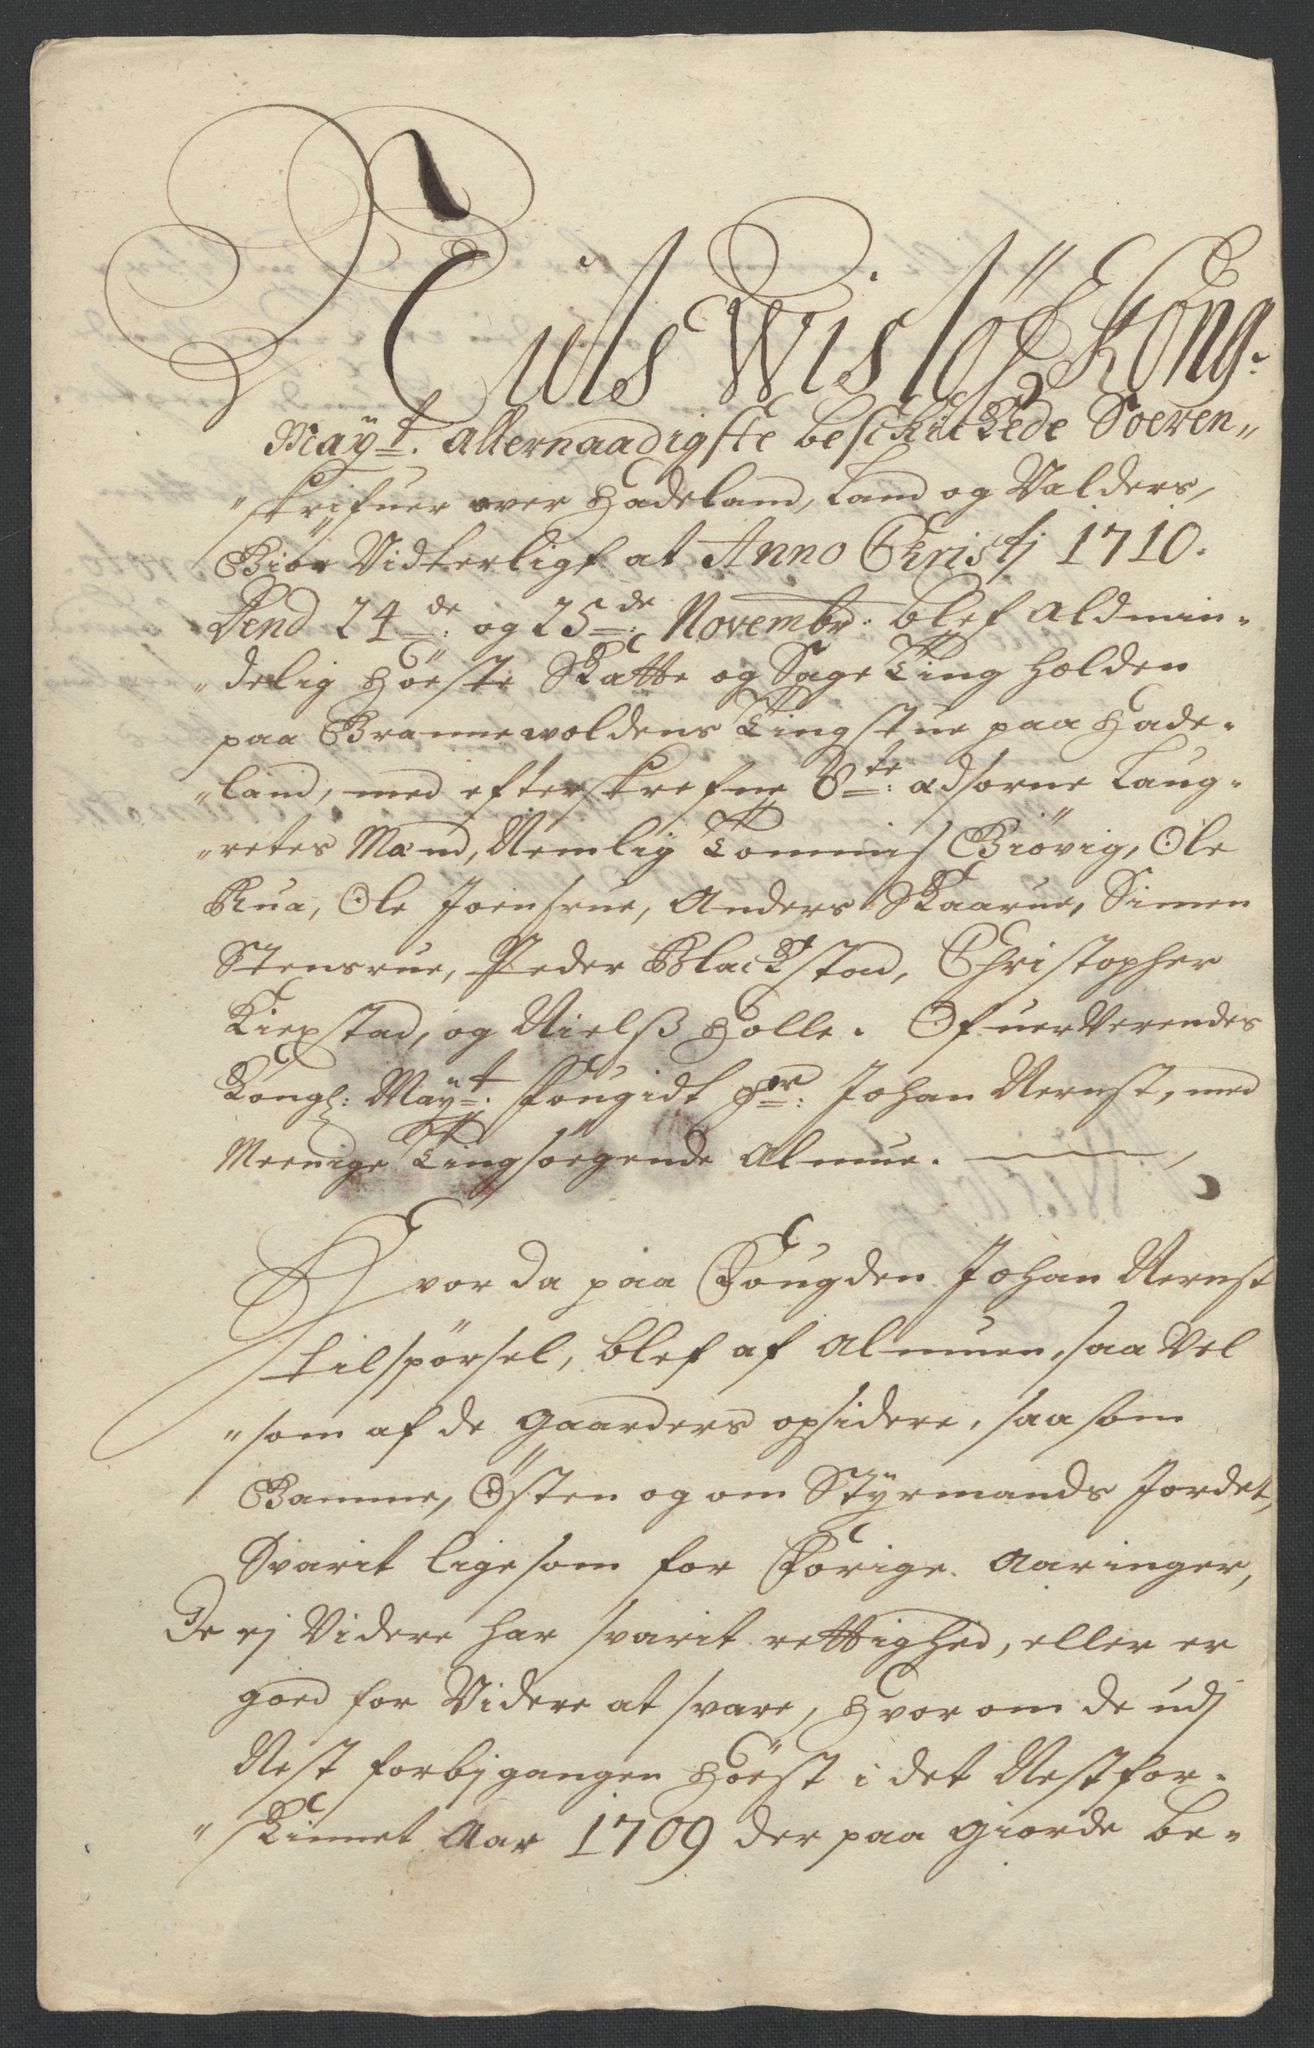 Euls Wisløf Kong.
Mayt. allernaadigste beschickede Soeren„
„skrifuer over Hadeland, Land og Valders,
Giör Vidterligt at Anno Christj 1710.
Dend 24de: og 25de: Novembr. blef aldmin„
„delig Höeste Skatte og Sage Ting holden
paa Brannewoldens Tingstue paa Hade„
„land, med efterskrefne 8te: Edsorne Laug„
„rettes Mænd, Nemlig Tommis Biövig, Ole
Rua, Ole Joensrue, Anders Skaarue, Simen
Stensrue, Peder Blackstad, Christopher
Kiexstad, og Nielß Holle. Ofuerverendes
Kongl: Mayt. Fougidt Hr: Johan Nernst, med
Meenige Tingsöegende Almue.
Hvor da paa Fougden Johan Nernst
tilspörsel, blef af Almuen, saa Vel
„som af de Gaarders opsidere, saasom
Gamme, Östen og om Styrmands Jordet,
Svarit ligesom for Forige Aaringer,
De ej Videre har svarit rettighed, eller er
goed for Videre at svare, Hvorom de udj
Nest forbigangen Höest i det Nestfor„
„skinnet Aar 1709 der paa giorde be„